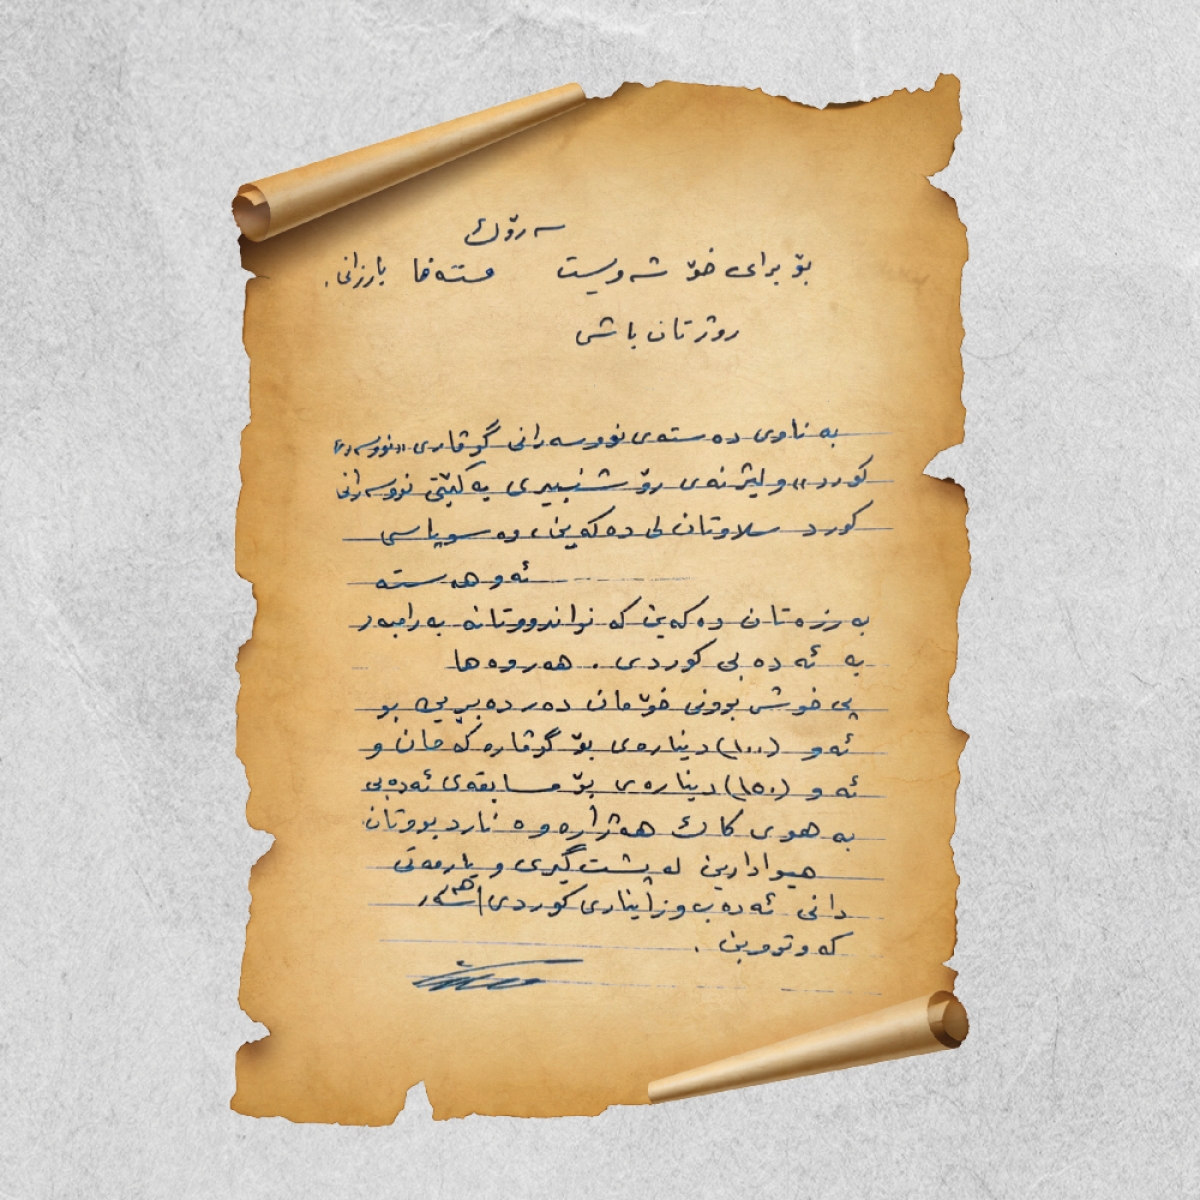 سەرۆك
بۆ برای خۆ شە ویست مستەفا بارزانی.
رۆژتان باشی
بە ناوی دە ستەی نووسەرانی گوڤاری «نووسەری
کورد» و لیژنەی رۆشنبیری یەکێتی نووسەرانی
کورد سلاوتان لی دەکەین، وە سوپاسی
ئەو هەستە
بەرزەتان دەکەین کە نواندووتانە بەرامبەر
بە ئەدەبی کوردی. هەروەها
پی خوش بوونی خۆمان دەردەبڕین بو
ئەو (١٠٠) دینارەی بۆ گوڤارەکەمان و
ئەو (١٥٠) دینارەی بۆ مسابقەی ئەدەبی
بە هوی کاك هەژارەوە ناردبووتان
هیوادارین لە پشت گیری و یارمەتی
دانی ئەدەب و زانیاری کوردی
کەوتوین.